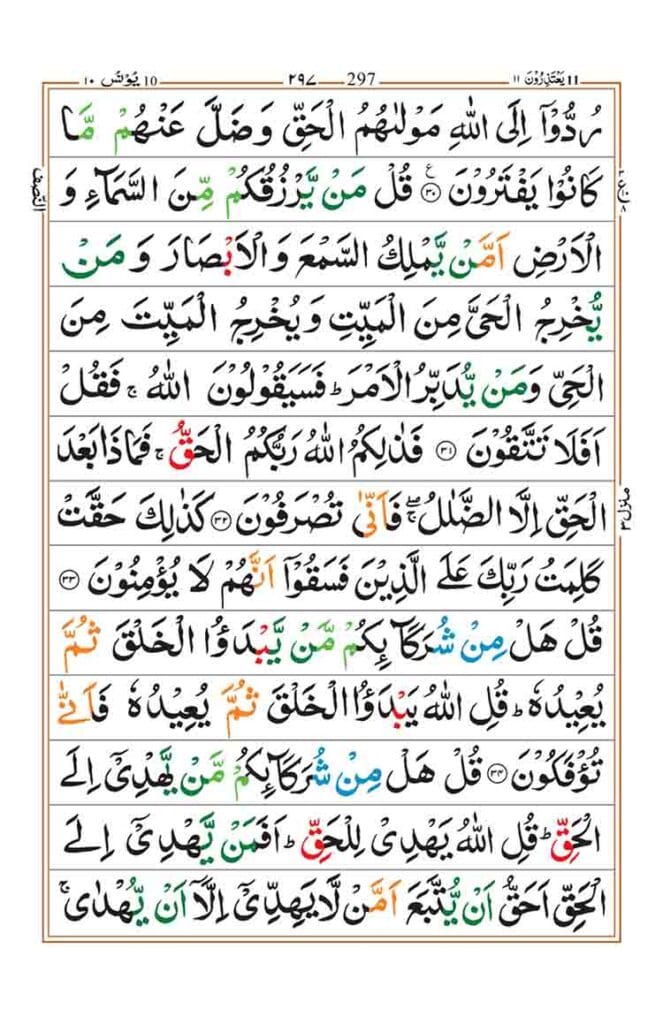 يَعْتَذِرُوْنَ ١١ 11
297 ٢٩٧
يُوْنُس ١٠ 10
رُدُّوْۤا اِلَى اللّٰهِ مَوْلٰىهُمُ الْحَقِّ وَضَلَّ عَنْهُمْ مَّا
كَانُوْا يَفْتَرُوْنَ ﴿٣٠﴾ ع قُلْ مَنْ يَّرْزُقُكُمْ مِّنَ السَّمَآءِ وَ
النّصف
الْاَرْضِ اَمَّنْ يَّمْلِكُ السَّمْعَ وَالْاَبْصَارَ وَمَنْ
يُّخْرِجُ الْحَيَّ مِنَ الْمَيِّتِ وَيُخْرِجُ الْمَيِّتَ مِنَ
الْحَيِّ وَمَنْ يُّدَبِّرُ الْاَمْرَ ؕ فَسَيَقُوْلُوْنَ اللّٰهُ ۚ فَقُلْ
اَفَلَا تَتَّقُوْنَ ﴿٣١﴾ فَذٰلِكُمُ اللّٰهُ رَبُّكُمُ الْحَقُّ ۚ فَمَاذَا بَعْدَ
الْحَقِّ اِلَّا الضَّلٰلُ ۖۚ فَاَنّٰى تُصْرَفُوْنَ ﴿٣٢﴾ كَذٰلِكَ حَقَّتْ
منزل ٣
كَلِمَتُ رَبِّكَ عَلَى الَّذِيْنَ فَسَقُوْۤا اَنَّهُمْ لَا يُؤْمِنُوْنَ ﴿٣٣﴾
قُلْ هَلْ مِنْ شُرَكَآئِكُمْ مَّنْ يَّبْدَؤُا الْخَلْقَ ثُمَّ
يُعِيْدُهٗ ؕ قُلِ اللّٰهُ يَبْدَؤُا الْخَلْقَ ثُمَّ يُعِيْدُهٗ فَاَنّٰى
تُؤْفَكُوْنَ ﴿٣٤﴾ قُلْ هَلْ مِنْ شُرَكَآئِكُمْ مَّنْ يَّهْدِيْۤ اِلَى
الْحَقِّ ؕ قُلِ اللّٰهُ يَهْدِيْ لِلْحَقِّ ؕ اَفَمَنْ يَّهْدِيْۤ اِلَى
الْحَقِّ اَحَقُّ اَنْ يُّتَّبَعَ اَمَّنْ لَّا يَهِدِّيْۤ اِلَّاۤ اَنْ يُّهْدٰى ۚ